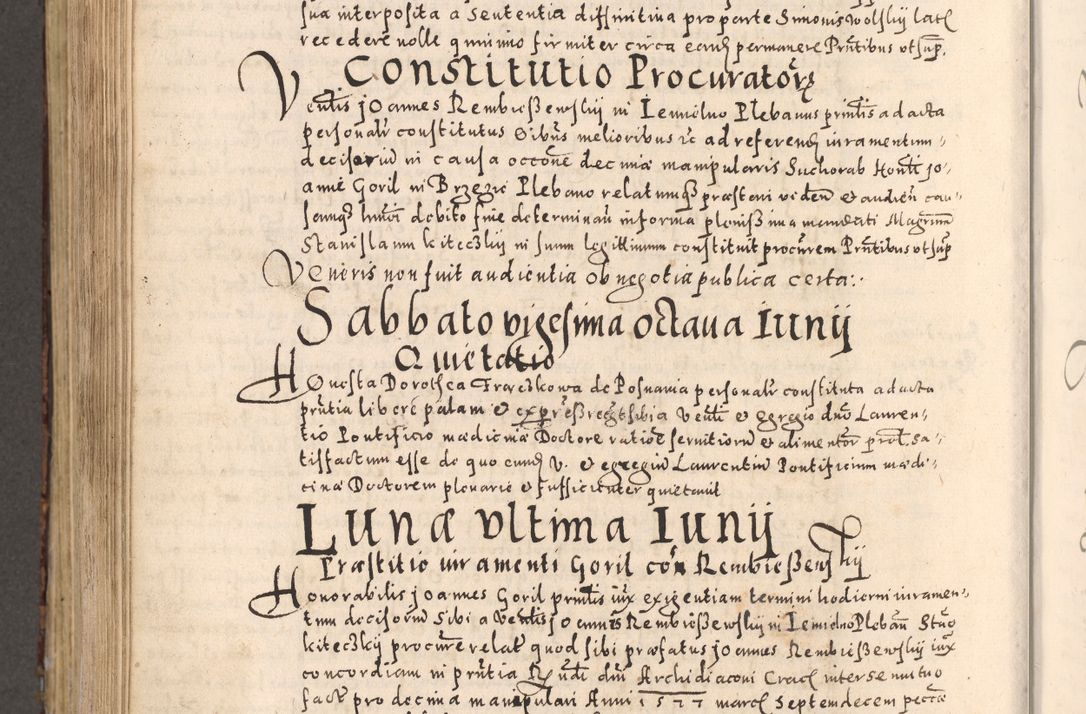 sua interposita a sententia diffinitiva pro parte Simonis Wolskij lat
recedere nolle quinimo firmiter circa eand permanere Pntibus vt sup.
Constitutio Procurator
Venlis Joannes Rembießewskij in Iemielno Plebanus pntis ad acta
personalr constitutus oibus melioribus rc ad referend iuramentum
decisoriu in causa occone decima manipularis Suchorab Honli Jo-
anne Goril in Brzezie Plebano relatumq præstari viden et audien cau-
samq hmoi debito fine determinan in forma plenissima mandati Magrum
Stanislaum kiteczkij in suum legittimum constituit procurem Pntibus vt sup
Veneris non fuit audientia ob negotia publica certa.
Sabbato vigesima octaua Iunij
Quietatio
Honesta Dorothea Frączkowa de Posnania personalr constituta ad acta
pntia libere palam et expresse sibi a Venli et Egregio dno Lauren-
tio Pontificio mædicinæ Doctore ratioe servitioru et alimentor satis-
tisfactum esse de quo eund V. et egregiu Laurentiu Pontificium mædi-
cinæ Doctorem plenarie et sufficienter quietauit
Lunæ vltima Iunij
Præstitio iuramenti Goril con Rembießewskij
Honorabilis Joannes Goril pntis iux exigentiam termini hodierni iuramen-
tum decisoriu sibi a Venlis Joannis Rembießewskij in Iemielno Pleban Stao
kiteczkij procurem relat quod sibi præfatus Joannes Rembießewskij iux
concordiam in pntia Rndi dni Archidiaconi Crac inter se mutuo
fact pro decima manipulari Anni 1577 marc septemdecem